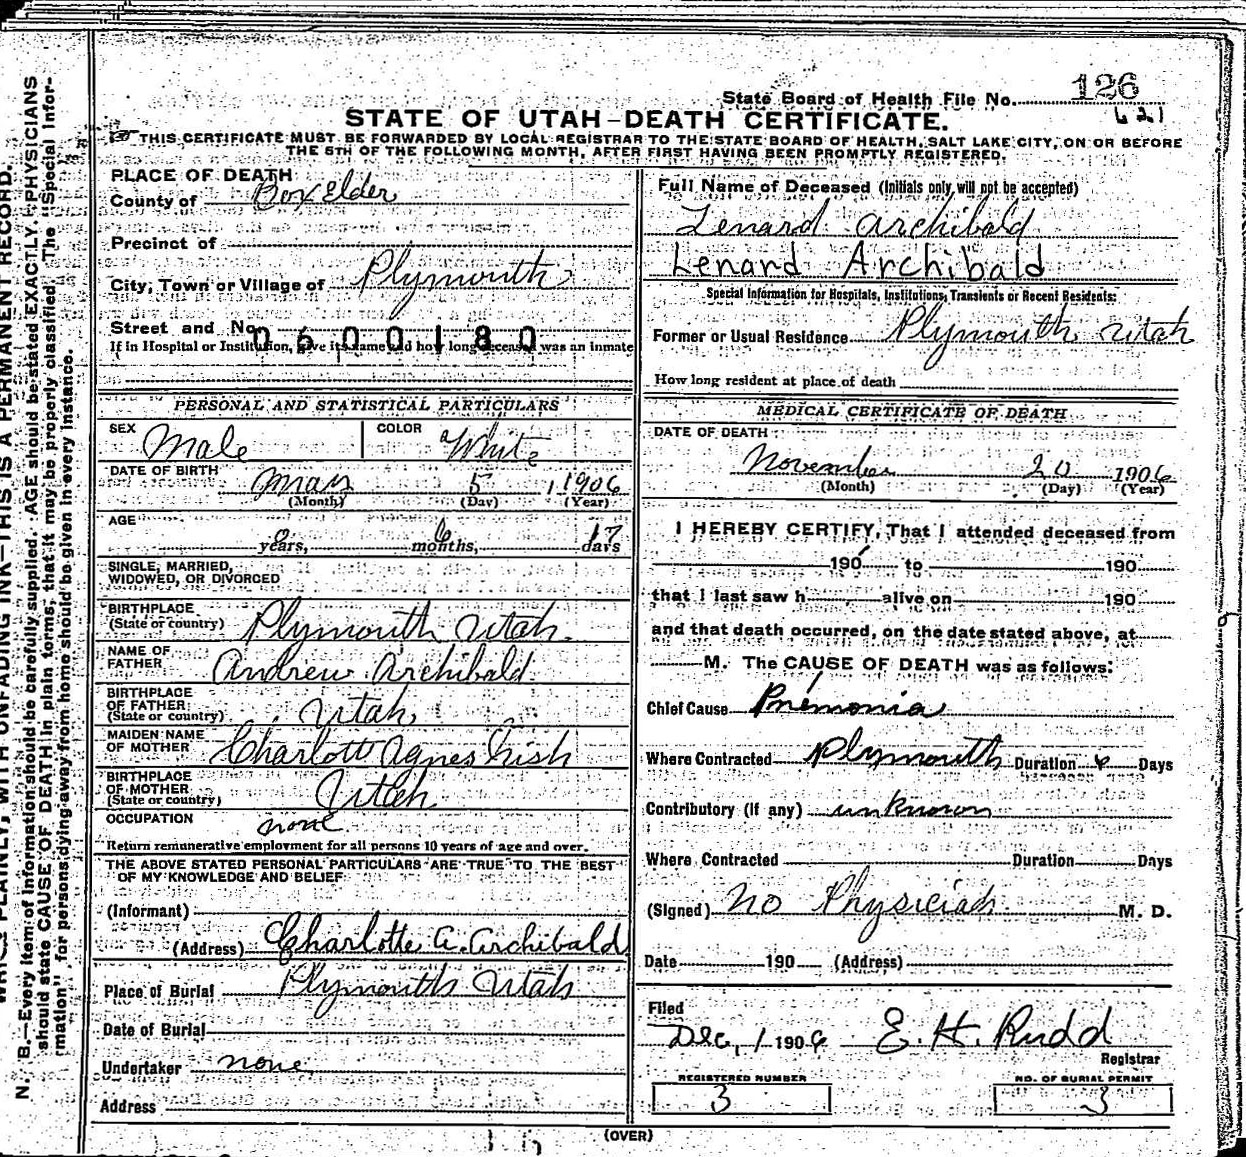 State Board of Health File No. 126
621
STATE OF UTAH-DEATH CERTIFICATE.
THIS CERTIFICATE MUST BE FORWARDED BY LOCAL REGISTRAR TO THE STATE BOARD OF HEALTH, SALT LAKE CITY, ON OR BEFORE
THE 5TH OF THE FOLLOWING MONTH, AFTER FIRST HAVING BEEN PROMPTLY REGISTERED.
PLACE OF DEATH
County of Box Elder
Precinct of
City, Town or Village of Plymouth
Street and No.
0600180
If in Hospital or Institution, give its name and how long deceased was an inmate
PERSONAL AND STATISTICAL PARTICULARS
SEX Male COLOR White
DATE OF BIRTH May 5 1906
(Month) (Day) (Year)
AGE
0 years, 6 months, 17 days
SINGLE, MARRIED,
WIDOWED, OR DIVORCED
BIRTHPLACE
(State or country) Plymouth Utah.
NAME OF
FATHER Andrew Archibald
BIRTHPLACE
OF FATHER
(State or country) Utah
MAIDEN NAME
OF MOTHER Charlott Agnes Nish
BIRTHPLACE
OF MOTHER
(State or country) Utah
OCCUPATION none
Return remunerative employment for all persons 10 years of age and over.
THE ABOVE STATED PERSONAL PARTICULARS ARE TRUE TO THE BEST
OF MY KNOWLEDGE AND BELIEF
(Informant)
(Address) Charlotte A. Archibald
Place of Burial Plymouth Utah
Date of Burial
Undertaker none
Address
Full Name of Deceased (Initials only will not be accepted)
Lenard Archibald
Lenard Archibald
Special Information for Hospitals, Institutions, Transients or Recent Residents:
Former or Usual Residence Plymouth Utah
How long resident at place of death
MEDICAL CERTIFICATE OF DEATH
DATE OF DEATH
November 20 1906
(Month) (Day) (Year)
I HEREBY CERTIFY, That I attended deceased from
190 to 190
that I last saw h alive on 190
and that death occurred, on the date stated above, at
M. The CAUSE OF DEATH was as follows:
Chief Cause Pnemonia
Where Contracted Plymouth Duration 6 Days
Contributory (if any) unknown
Where Contracted Duration Days
(Signed) No Physician M. D.
Date 190 (Address)
Filed
Dec, 1 1906 E. H. Rudd
Registrar
REGISTERED NUMBER
3
NO. OF BURIAL PERMIT
3
(OVER)
N. B.—Every item of information should be carefully supplied. AGE should be stated EXACTLY. PHYSICIANS
should state CAUSE OF DEATH in plain terms, that it may be properly classified. The "Special Infor-
mation" for persons dying away from home should be given in every instance.
PLAINLY, WITH UNFADING INK—THIS IS A PERMANENT RECORD.